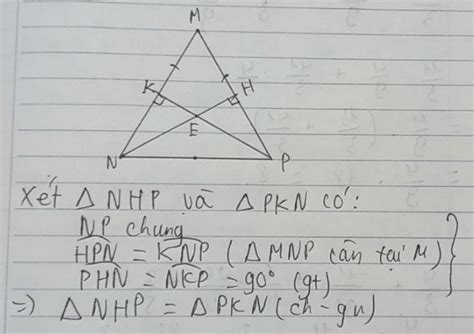 M
K H
E
N P
Xét △ NHP và △ PKN có:
NP chung
HPN = KNP (△ MNP cân tại M)
PHN = NKP = 90° (gt)
=> △ NHP = △ PKN (ch - gn)